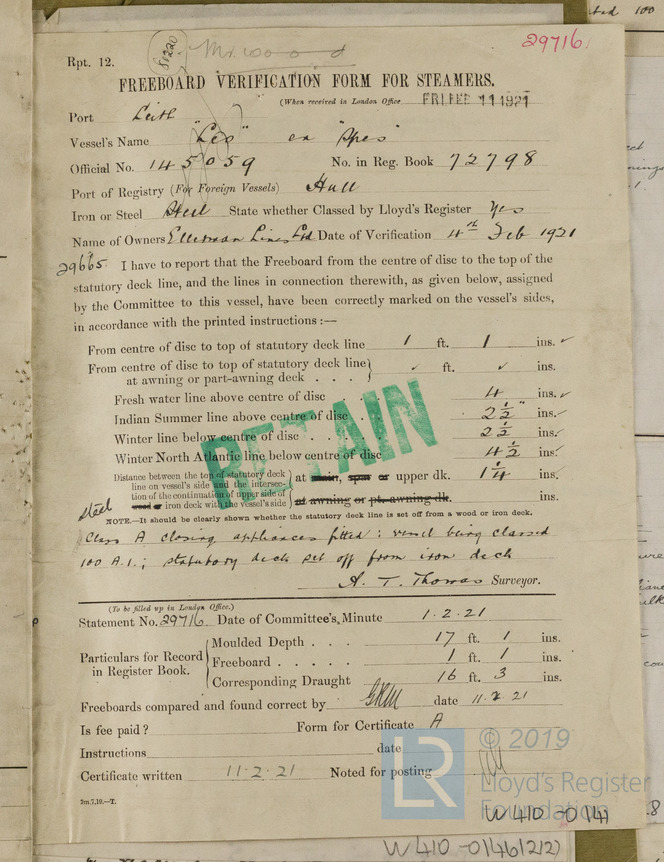 29716
81220
Mr. Wood
Rpt. 12.
FREEBOARD VERIFICATION FORM FOR STEAMERS.
(When received in London Office FRI. FEB 11 1921
Port Leith
Vessel's Name "Leo" ex "Spes"
Official No. 145059 No. in Reg. Book 72798
Port of Registry (For Foreign Vessels) Hull
Iron or Steel Steel State whether Classed by Lloyd's Register Yes
Name of Owners Ellerman Lines Ltd Date of Verification 4th Feb 1921
29665 I have to report that the Freeboard from the centre of disc to the top of the
statutory deck line, and the lines in connection therewith, as given below, assigned
by the Committee to this vessel, have been correctly marked on the vessel's sides,
in accordance with the printed instructions :—
From centre of disc to top of statutory deck line 1 ft. 1 ins. ✓
From centre of disc to top of statutory deck line } ✓ ft. ✓ ins.
at awning or part-awning deck . . .
Fresh water line above centre of disc . . 4 ins. ✓
Indian Summer line above centre of disc . 2 1/2" ins. ✓
Winter line below centre of disc . . . 2 1/2 ins. ✓
Winter North Atlantic line below centre of disc 4 1/2 ins. ✓
RETAIN
Distance between the top of statutory deck
line on vessel's side and the intersec- } at main, spar or upper dk. 1 1/4 ins.
tion of the continuation of upper side of
steel wood or iron deck with the vessel's side } at awning or pt. awning dk. ins.
NOTE.—It should be clearly shown whether the statutory deck line is set off from a wood or iron deck.
Class A closing appliances fitted : vessel being classed
100 A.1. ; statutory deck set off from iron deck
A. T. Thomas Surveyor.
(To be filled up in London Office.)
Statement No. 29716 Date of Committee's Minute 1.2.21
Particulars for Record in Register Book.
Moulded Depth . . . 17 ft. 1 ins.
Freeboard . . . . . 1 ft. 1 ins.
Corresponding Draught 16 ft. 3 ins.
Freeboards compared and found correct by date 11.2.21
Is fee paid? Form for Certificate A
Instructions date
Certificate written 11.2.21 Noted for posting
2m,7,19.—T.
LR © 2019
Lloyd's Register
Foundation
W410-0141
W410-0146(2/2)